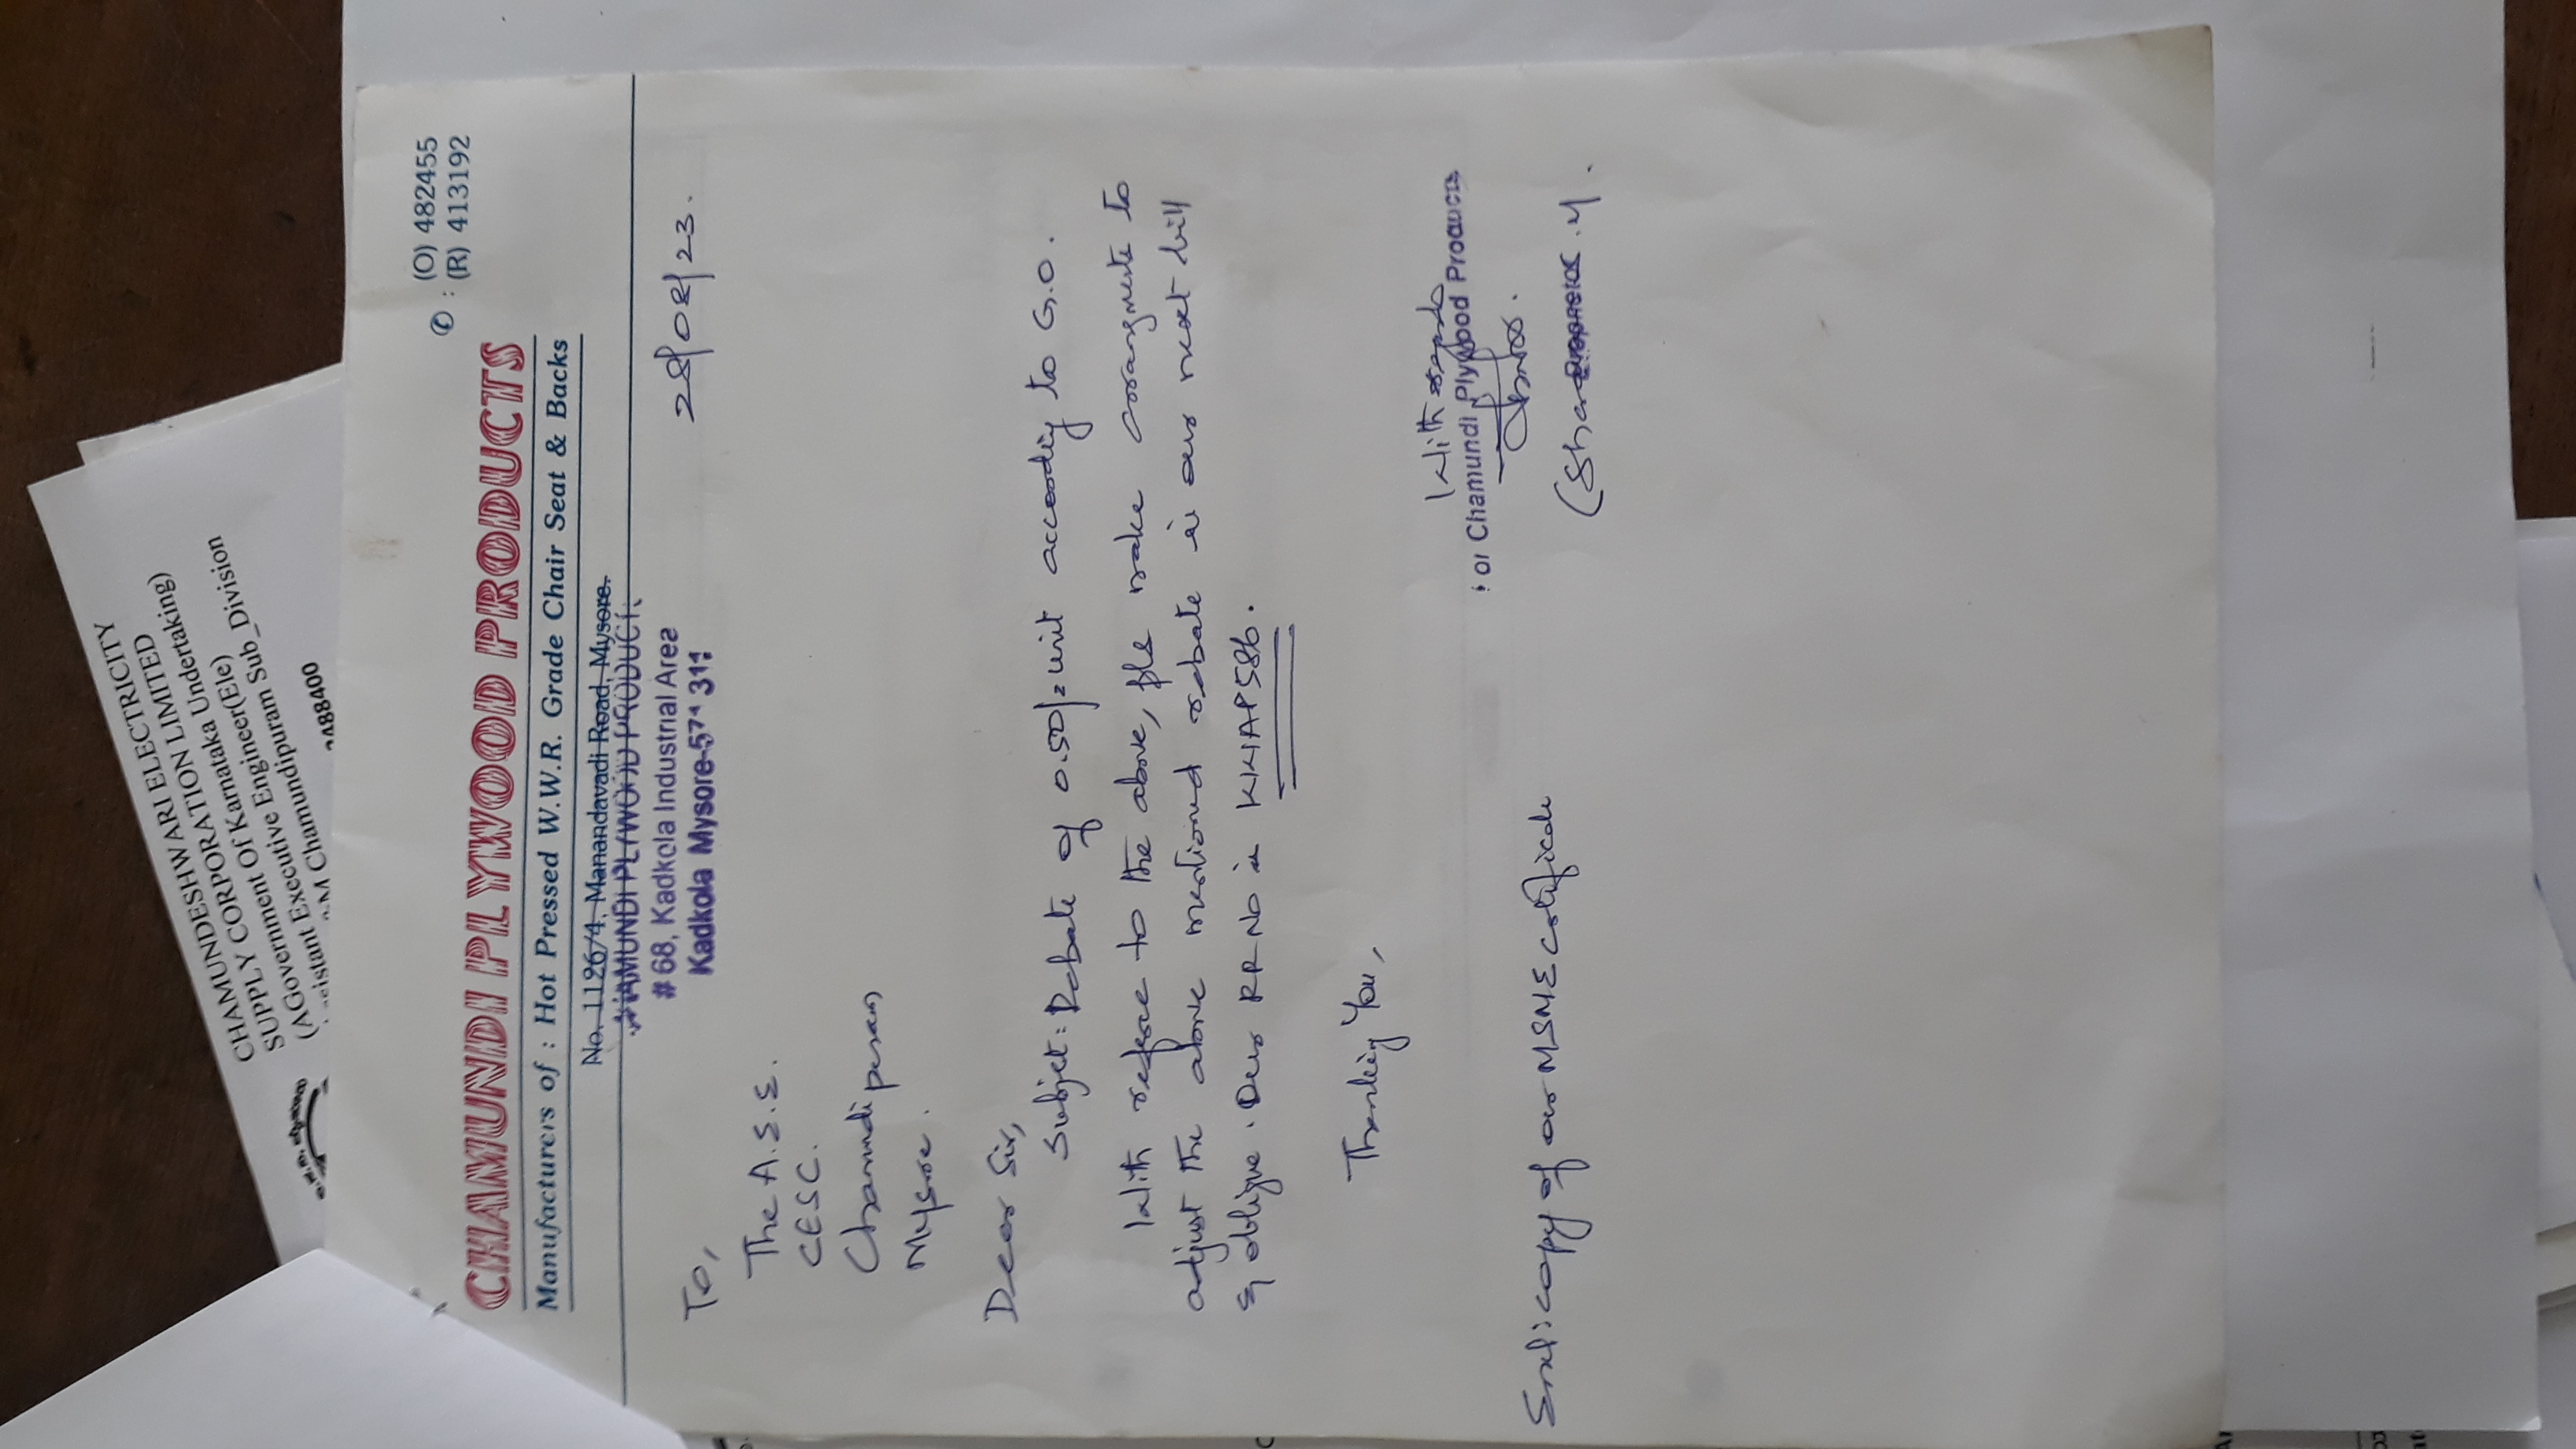 CHAMUNDESHWARI ELECTRICITY
SUPPLY CORPORATION LIMITED
(AGovernment Of Karnataka Undertaking)
Executive Engineer(Ele)
Chamundipuram Sub_Division
2488400
CHAMUNDI PLYWOOD PRODUCTS
✆ : (O) 482455
(R) 413192
Manufacturers of : Hot Pressed W.W.R. Grade Chair Seat & Backs
No. 1126/4, Manandavadi Road, Mysore.
CHAMUNDI PLYWOOD PRODUCT.
# 68, Kadkola Industrial Area
Kadkola Mysore-571 311
28/08/23.
To,
The A.S.E.
CESC.
Chamundipuram
Mysore.
Dear Sir,
Subject: Rebate of 0.50/unit according to G.O.
With reference to the above, pls make arrangments to
adjust the above mentioned rebate in our next bill
& oblige. Our RR No is KKIAP586.
Thanking You,
With regards
For Chamundi Plywood Products
Encl: copy of our MSME certificate